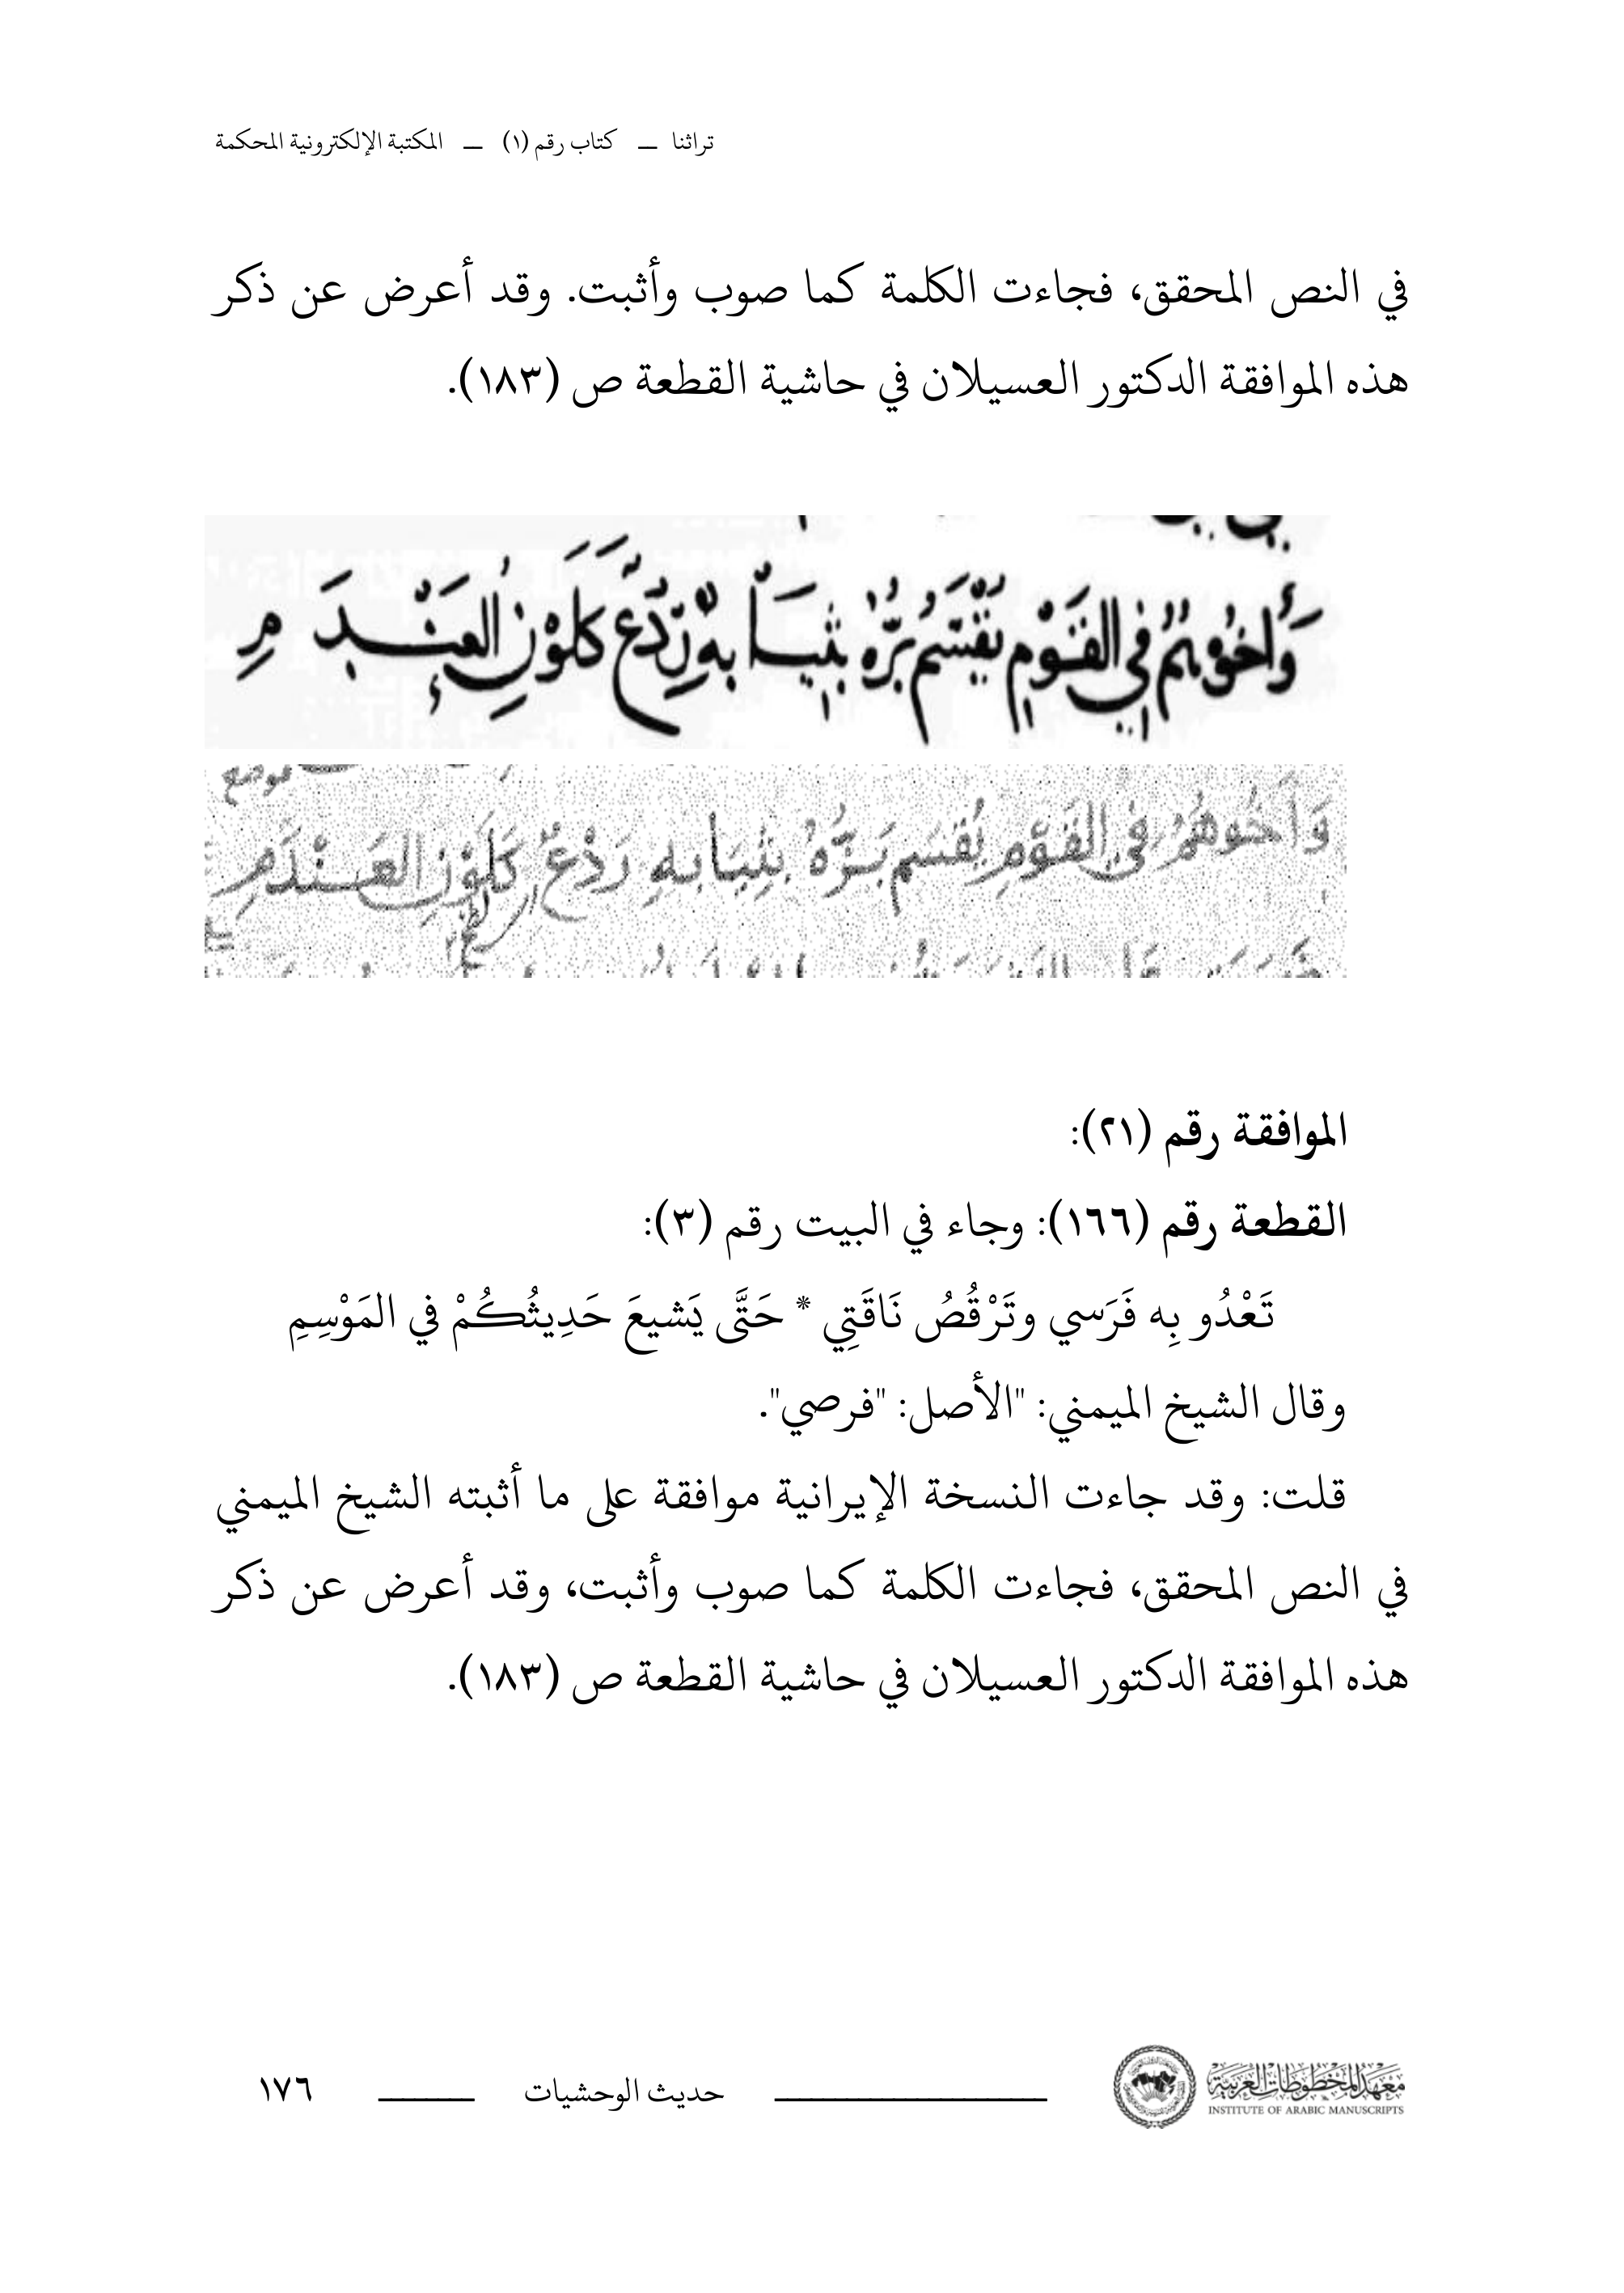 تراثنا — كتاب رقم (١) — المكتبة الإلكترونية المحكمة
في النص المحقق، فجاءت الكلمة كما صوب وأثبت. وقد أعرض عن ذكر
هذه الموافقة الدكتور العسيلان في حاشية القطعة ص (١٨٣).
وَأَخُوهُمُ فِي القَوْمِ يُقْسَمُ بَزُّهُ بِثِيَابِهِ رَدْعٌ كَلَوْنِ العَنْدَمِ
وَأَخُوهُمُ فِي القَوْمِ يُقْسَم بَزُّهُ بِثِيَابِهِ رَدْعٌ كَلَوْنِ العَنْدَمِ
الموافقة رقم (٢١):
القطعة رقم (١٦٦): وجاء في البيت رقم (٣):
تَعْدُو بِه فَرَسي وتَرْقُصُ نَاقَتِي * حَتَّى يَشيعَ حَدِيثُكُمْ في المَوْسِمِ
وقال الشيخ الميمني: "الأصل: "فرصي".
قلت: وقد جاءت النسخة الإيرانية موافقة على ما أثبته الشيخ الميمني
في النص المحقق، فجاءت الكلمة كما صوب وأثبت، وقد أعرض عن ذكر
هذه الموافقة الدكتور العسيلان في حاشية القطعة ص (١٨٣).
معهد المخطوطات العربية
INSTITUTE OF ARABIC MANUSCRIPTS
حديث الوحشيات
١٧٦